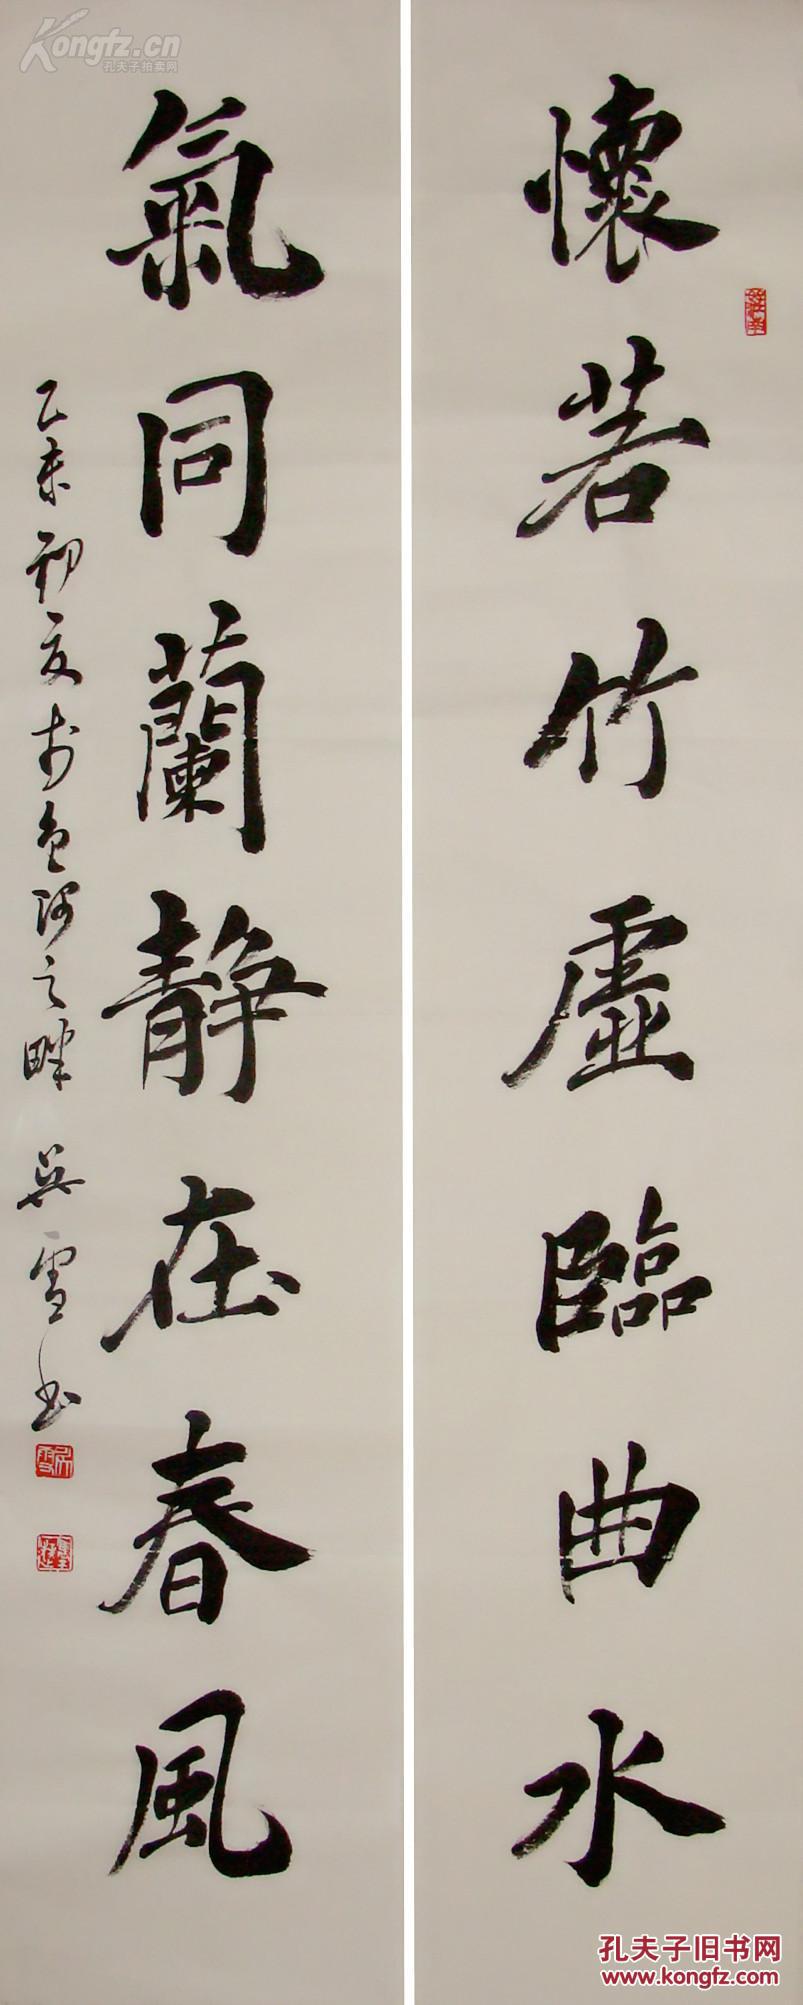 懷若竹虛臨曲水
氣同蘭靜在春風
乙未初夏於色河之畔 吳雪書
Kongfz.cn
孔夫子拍卖网
孔夫子旧书网
www.kongfz.com